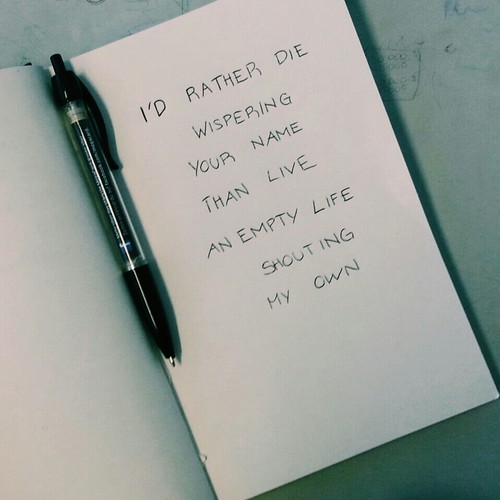 I'D RATHER DIE
WISPERING
YOUR NAME
THAN LIVE
AN EMPTY LIFE
SHOUTING
MY OWN